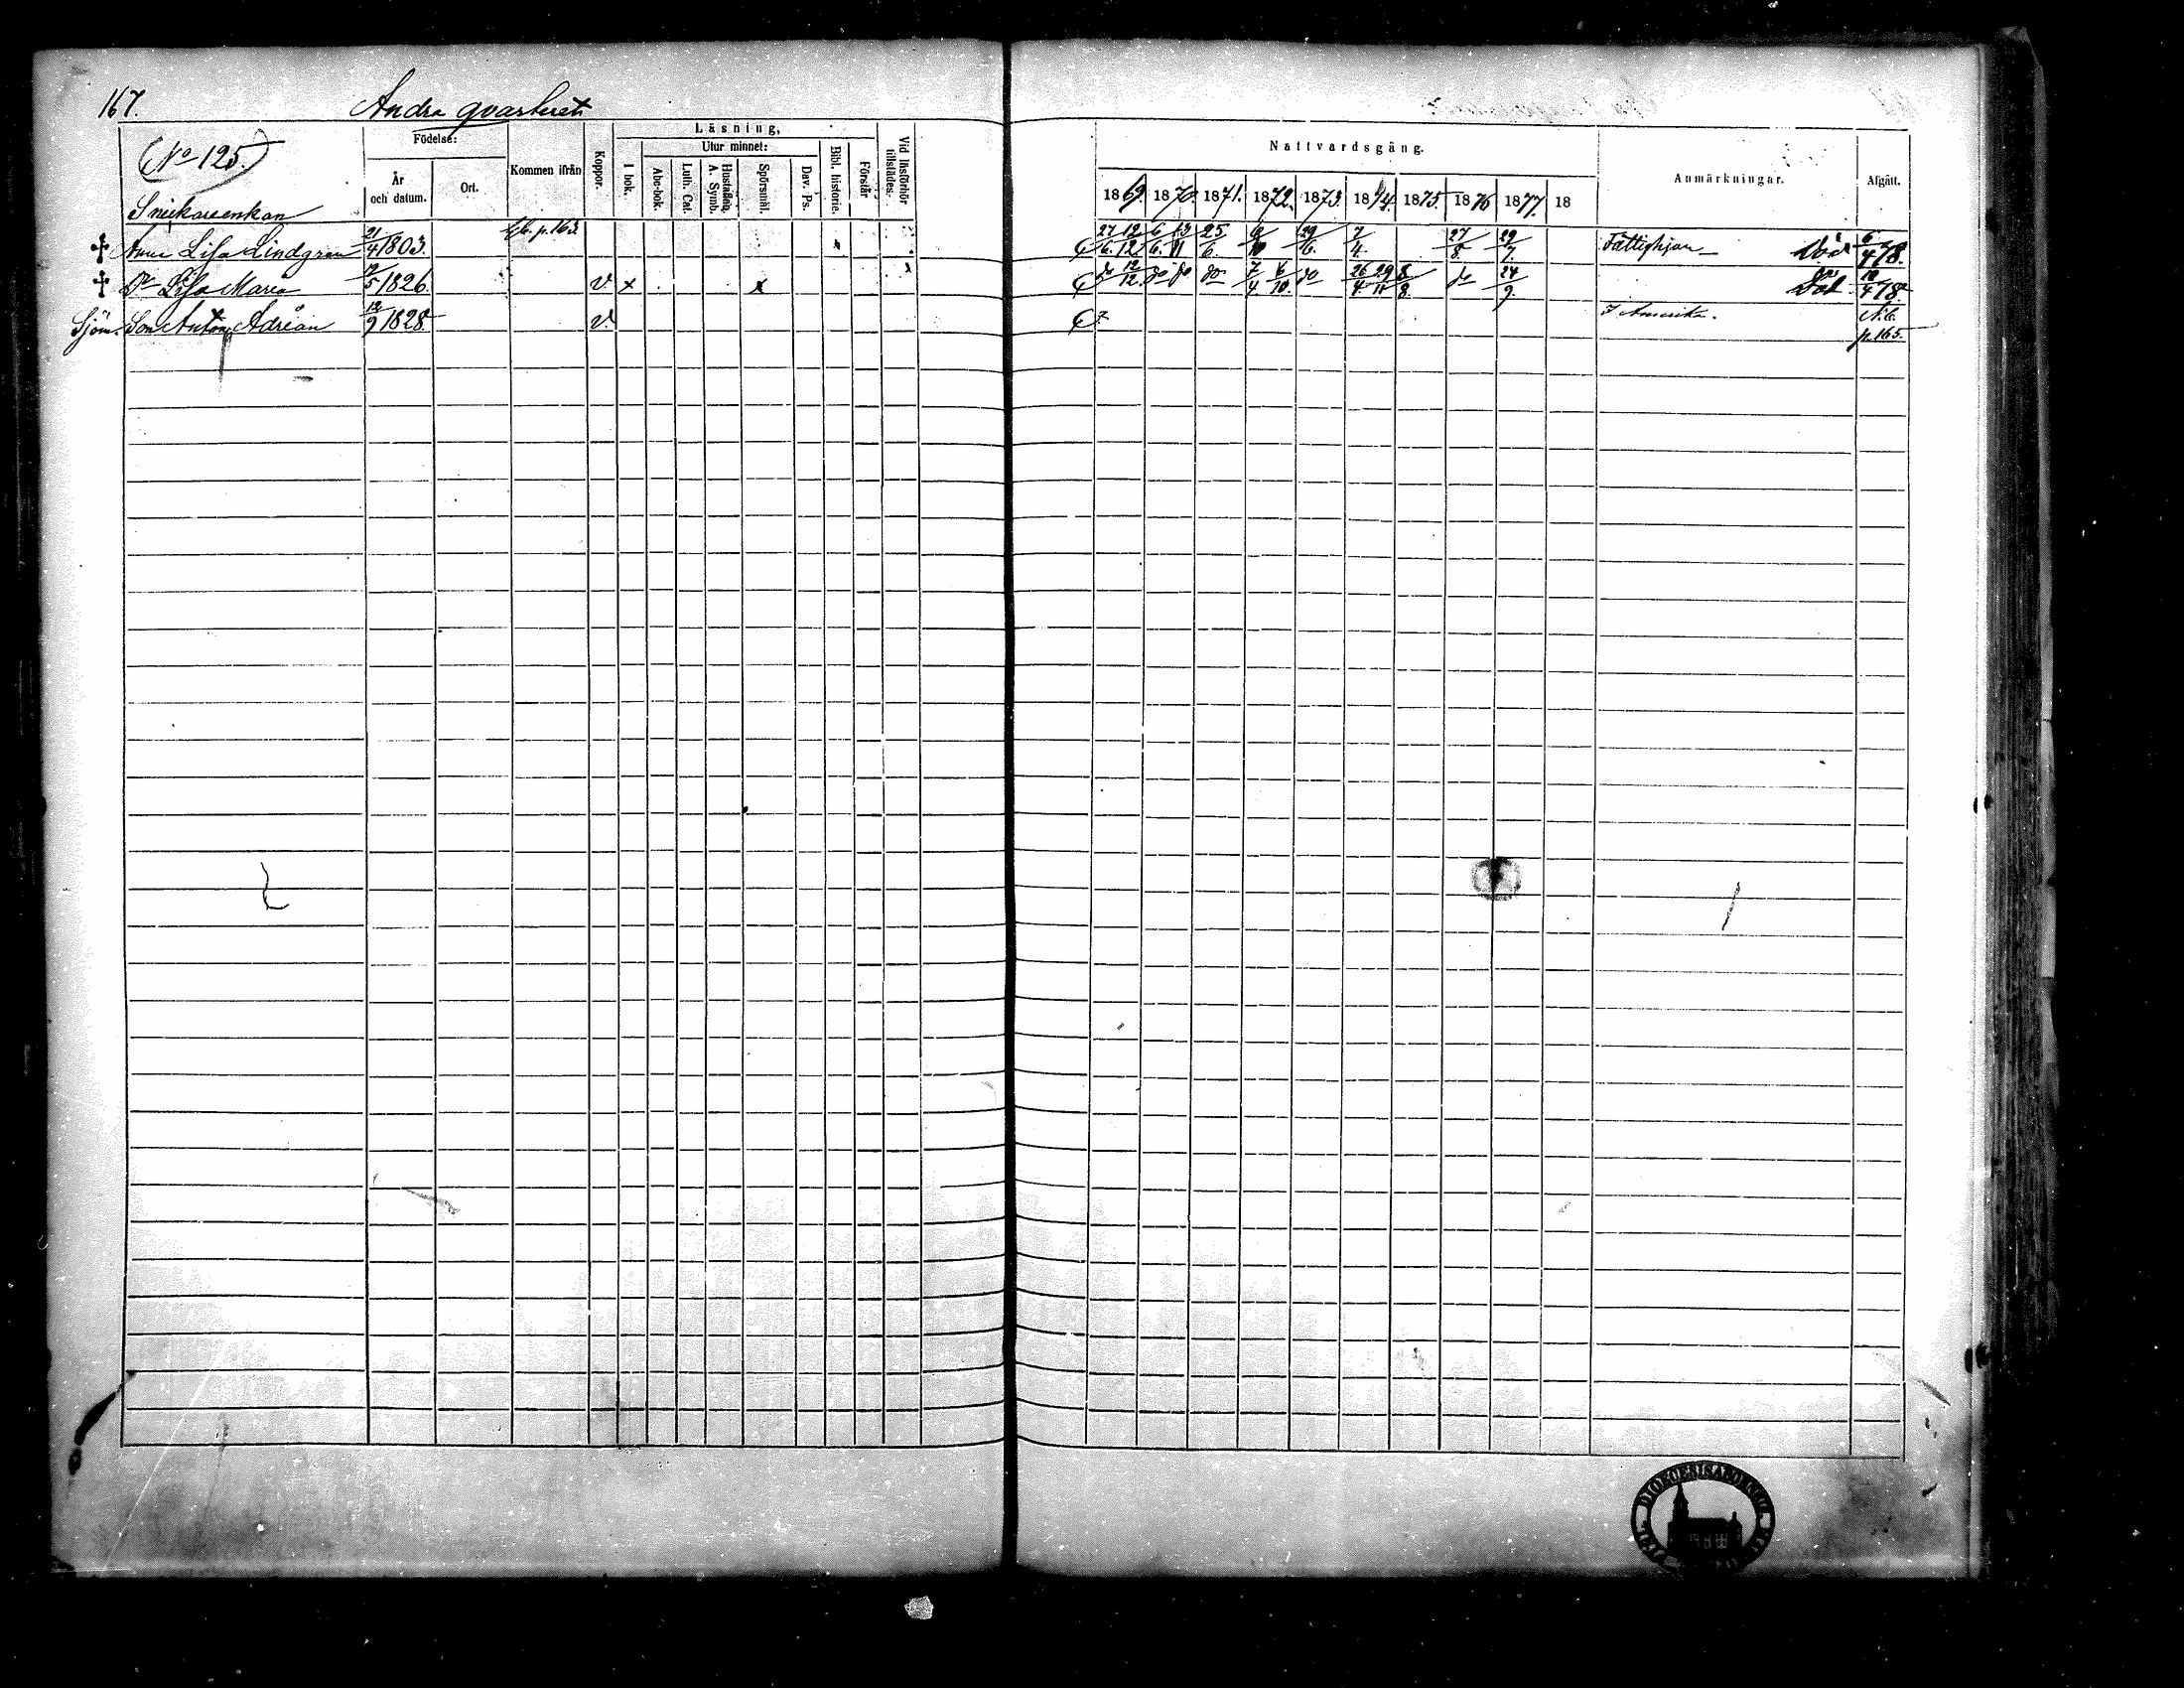 167.
Andra qvarteret
(No 125.)
Födelse:
År och datum.
Ort.
Kommen ifrån
Koppor.
Läsning,
I bok.
Utur minnet:
Abc-bok.
Luth. Cat.
Hustaflan, A. Symb.
Spörsmål.
Dav. Ps.
Bibl. historie.
Förstår
Vid läsförhör tillstädes.
Nattvardsgång.
1869. 1870. 1871. 1872. 1873. 1874. 1875. 1876 1877. 18
Anmärkningar.
Afgått.
Snickareenkan
Anna Lisa Lindgren 21/4 1803. p. 163 27/6 12/12 6/6 13/11 25/6. 6/10 29/6. 7/4. 27/8. 29/7. Fattighjon Död 6/4 78.
Dr Lisa Maria 12/5 1826. v. x x do 12/12 do do do 7/4 6/10. do 26/4 29/11 8/8. do 24/9. Död 10/4 78
Sjöm. Son Anton Adrian 12/9 1828. v. I Amerika. N.b.
p. 165.